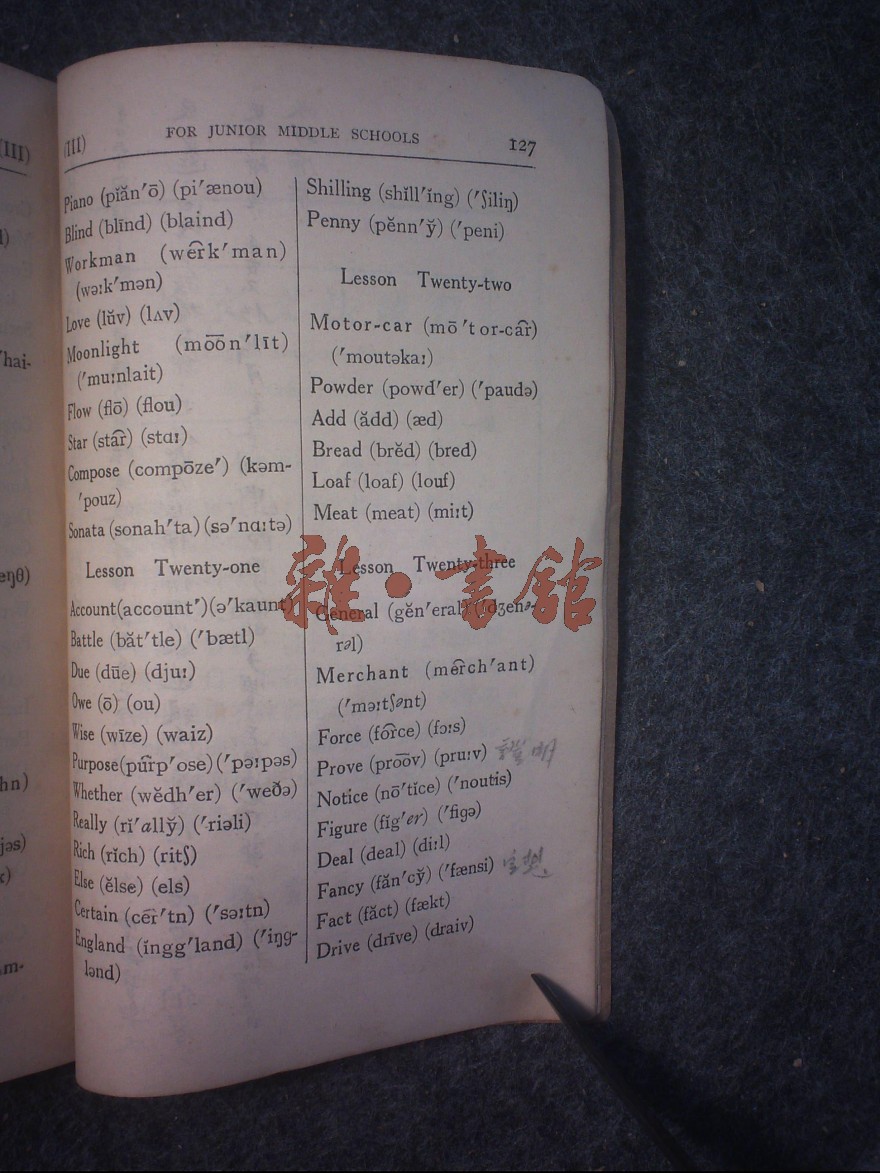 (III) FOR JUNIOR MIDDLE SCHOOLS 127
Piano (pĭăn′ō) (pi′ænou)
Blind (blīnd) (blaind)
Workman (wẽrk′man)
(wəːk′mən)
Love (lŭv) (lʌv)
Moonlight (mōōn′līt)
(′muːnlait)
Flow (flō) (flou)
Star (stâr) (stɑː)
Compose (compōze′) (kəm-
′pouz)
Sonata (sonah′ta) (sə′nɑːtə)
Lesson Twenty-one
Account (account′) (ə′kaunt)
Battle (băt′tle) (′bætl)
Due (dūe) (djuː)
Owe (ō) (ou)
Wise (wīze) (waiz)
Purpose (pûrp′ose) (′pəːpəs)
Whether (wĕdh′er) (′weðə)
Really (rī′ally̆) (′riəli)
Rich (rĭch) (ritʃ)
Else (ĕlse) (els)
Certain (cẽr′tn) (′səːtn)
England (ĭngg′land) (′iŋg-
lənd)
Shilling (shĭll′ĭng) (′ʃiliŋ)
Penny (pĕnn′y̆) (′peni)
Lesson Twenty-two
Motor-car (mō′tor-câr)
(′moutəkaː)
Powder (powd′er) (′paudə)
Add (ădd) (æd)
Bread (brĕd) (bred)
Loaf (loaf) (louf)
Meat (meat) (miːt)
Lesson Twenty-three
General (gĕn′eral) (′dʒenə-
rəl)
Merchant (mẽrch′ant)
(′məːtʃənt)
Force (fôrce) (fɔːs)
Prove (prōōv) (pruːv) 證明
Notice (nō′tĭce) (′noutis)
Figure (fĭg′er) (′figə)
Deal (deal) (diːl)
Fancy (făn′cy̆) (′fænsi)
Fact (făct) (fækt)
Drive (drīve) (draiv)
雜·書館